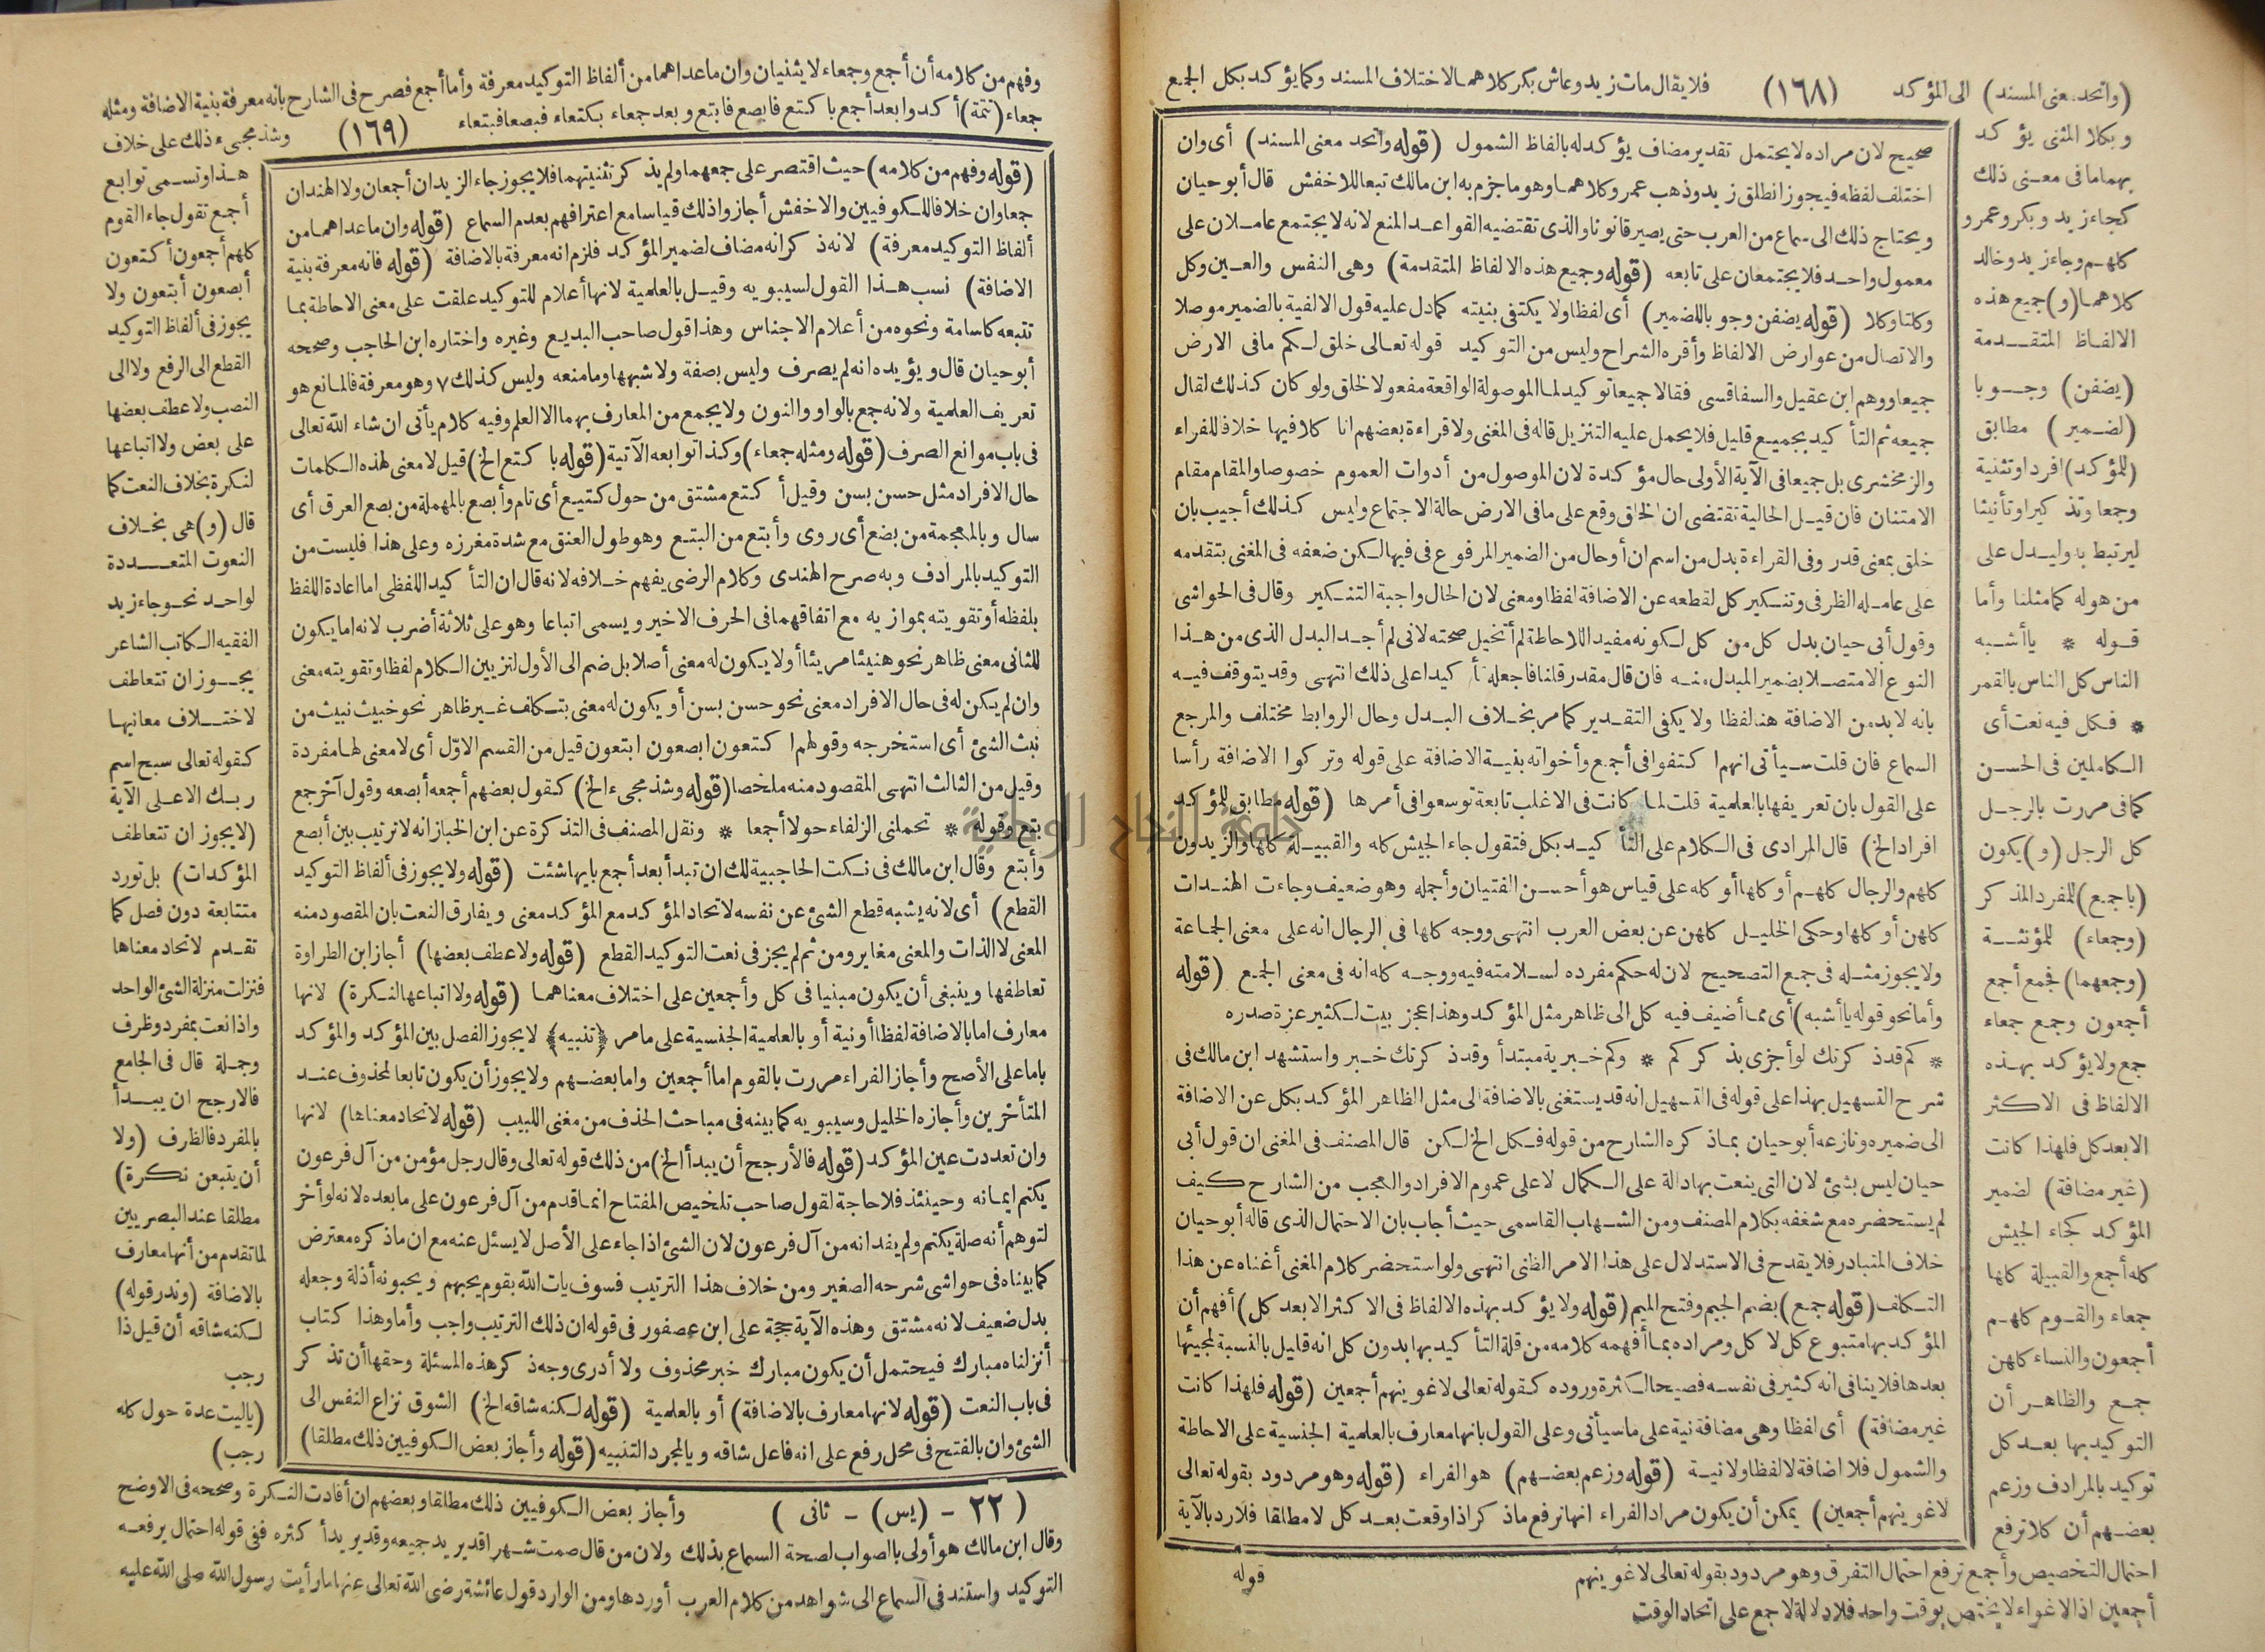 (واتحد معنى المسند) الى المؤكد (١٦٨) فلا يقال مات زيد وعاش بكر كلاهما لاختلاف المسند وكما يؤكد بكل الجمع
وبكلا المثنى يؤكد
بهما ما فى معنى ذلك
كجاء زيد وبكر وعمرو
كلهم وجاء زيد وخالد
كلاهما (و) جميع هذه
الالفاظ المتقدمة
(يضفن) وجوبا
(لضمير) مطابق
(للمؤكد) افرادا وتثنية
وجمعا وتذكيرا وتأنيثا
ليرتبط به وليدل على
من هو له كما مثلنا وأما
قوله * يا أشبه
الناس كل الناس بالقمر
* فكل فيه نعت أى
الكاملين فى الحسن
كما فى مررت بالرجل
كل الرجل (و) يكون
(باجمع) للمفرد المذكر
(وجمعاء) للمؤنثة
(وجمعهما) فجمع أجمع
أجمعون وجمع جمعاء
جمع ولا يؤكد بهذه
الالفاظ فى الاكثر
الابعد كل فلهذا كانت
(غير مضافة) لضمير
المؤكد كجاء الجيش
كله أجمع والقبيلة كلها
جمعاء والقوم كلهم
أجمعون والنساء كلهن
جمع والظاهر أن
التوكيد بها بعد كل
توكيد بالمرادف وزعم
بعضهم أن كلا ترفع
احتمال التخصيص وأجمع ترفع احتمال التفرق وهو مردود بقوله تعالى لاغوينهم
أجمعين اذ الاغواء لا يختص بوقت واحد فلا دلالة لاجمع على اتحاد الوقت
صحيح لان مراده لا يحتمل تقدير مضاف يؤكد له بالفاظ الشمول (قوله واتحد معنى المسند) أى وان
اختلف لفظه فيجوز انطلق زيد وذهب عمرو كلاهما وهو ما جزم به ابن مالك تبعا للاخفش قال أبو حيان
ويحتاج ذلك الى سماع من العرب حتى يصير قانونا والذى تقتضيه القواعد المنع لانه لا يجتمع عاملان على
معمول واحد فلا يجتمعان على تابعه (قوله وجميع هذه الالفاظ المتقدمة) وهى النفس والعين وكل
وكلتا وكلا (قوله يضفن وجوبا للضمير) أى لفظا ولا يكتفى بنيته كما دل عليه قول الالفية بالضمير موصلا
والاتصال من عوارض الالفاظ وأقره الشراح وليس من التوكيد قوله تعالى خلق لكم ما فى الارض
جميعا ووهم ابن عقيل والسفاقسى فقالا جميعا توكيد لما الموصولة الواقعة مفعولا لخلق ولو كان كذلك لقال
جميعه ثم التأكيد بجميع قليل فلا يحمل عليه التنزيل قاله فى المغنى ولا قراءة بعضهم انا كلا فيها خلافا للفراء
والزمخشرى بل جميعا فى الآية الأولى حال مؤكدة لان الموصول من أدوات العموم خصوصا والمقام مقام
الامتنان فان قيل الحالية تقتضى ان الخلق وقع على ما فى الارض حالة الاجتماع وليس كذلك أجيب بان
خلق بمعنى قدر وفى القراءة بدل من اسم ان أو حال من الضمير المرفوع فى فيها لكن ضعفه فى المغنى بتقدمه
على عامله الظرفى وتنكير كل لقطعه عن الاضافة لفظا ومعنى لان الحال واجبة التنكير وقال فى الحواشى
وقول أبى حيان بدل كل من كل لكونه مفيدا للاحاطة لم أتخيل صحته لانى لم أجد البدل الذى من هذا
النوع الا متصلا بضمير المبدل منه فان قال مقدر قلنا فاجعله تأكيدا على ذلك انتهى وقد يتوقف فيه
بانه لابد من الاضافة هنا لفظا ولا يكفى التقدير كما مر بخلاف البدل وحال الروابط مختلف والمرجع
السماع فان قلت سيأتى انهم اكتفوا فى أجمع وأخواته بنية الاضافة على قوله وتركوا الاضافة رأسا
على القول بان تعريفها بالعلمية قلت لما كانت فى الاغلب تابعة توسعوا فى أمرها (قوله مطابق للمؤكد
افرادا الخ) قال المرادى فى الكلام على التأكيد بكل فتقول جاء الجيش كله والقبيلة كلها والزيدون
كلهم والرجال كلهم أو كلها أو كله على قياس هو أحسن الفتيان وأجمله وهو ضعيف وجاءت الهندات
كلهن أو كلها وحكى الخليل كلهن عن بعض العرب انتهى ووجه كلها فى الرجال انه على معنى الجماعة
ولا يجوز مثله فى جمع التصحيح لان له حكم مفرده لسلامته فيه ووجه كله انه فى معنى الجمع (قوله
وأما نحو قوله يا أشبه) أى مما أضيف فيه كل الى ظاهر مثل المؤكد وهذا عجز بيت لكثير عزة صدره
* كم قد ذكرتك لو أجزى بذكركم * وكم خبرية مبتدأ وقد ذكرتك خبر واستشهد ابن مالك فى
شرح التسهيل بهذا على قوله فى التسهيل انه قد يستغنى بالاضافة الى مثل الظاهر المؤكد بكل عن الاضافة
الى ضميره ونازعه أبو حيان بما ذكره الشارح من قوله فكل الخ لكن قال المصنف فى المغنى ان قول أبى
حيان ليس بشئ لان التى ينعت بها دالة على الكمال لا على عموم الافراد والعجب من الشارح كيف
لم يستحضره مع شغفه بكلام المصنف ومن الشهاب القاسمى حيث أجاب بان الاحتمال الذى قاله أبو حيان
خلاف المتبادر فلا يقدح فى الاستدلال على هذا الامر الظنى انتهى ولو استحضر كلام المغنى أغناه عن هذا
التكلف (قوله جمع) بضم الجيم وفتح الميم (قوله ولا يؤكد بهذه الالفاظ فى الاكثر الا بعد كل) أفهم أن
المؤكد بها متبوع كل لا كل ومراده بما أفهمه كلامه من قلة التأكيد بها بدون كل انه قليل بالنسبة لمجيئها
بعدها فلا ينافى انه كثير فى نفسه فصيحا لكثرة وروده كقوله تعالى لاغوينهم أجمعين (قوله فلهذا كانت
غير مضافة) أى لفظا وهى مضافة نية على ما سيأتى وعلى القول بانها معارف بالعلمية الجنسية على الاحاطة
والشمول فلا اضافة لا لفظا ولا نية (قوله وزعم بعضهم) هو الفراء (قوله وهو مردود بقوله تعالى
لاغوينهم أجمعين) يمكن أن يكون مراد الفراء انها ترفع ما ذكر اذا وقعت بعد كل لا مطلقا فلا رد بالآية
قوله
وفهم من كلامه أن أجمع وجمعاء لا يثنيان وان ما عداهما من ألفاظ التوكيد معرفة وأما أجمع فصرح فى الشارح بانه معرفة بنية الاضافة ومثله
جمعاء (تتمة) أكدوا بعد أجمع باكتع فابصع فابتع وبعد جمعاء بكتعاء فبصعاء فبتعاء (١٦٩) وشذ مجىء ذلك على خلاف
هذا وتسمى توابع
أجمع تقول جاء القوم
كلهم أجمعون أكتعون
أبصعون أبتعون ولا
يجوز فى ألفاظ التوكيد
القطع الى الرفع ولا الى
النصب ولا عطف بعضها
على بعض ولا اتباعها
لنكرة بخلاف النعت كما
قال (و) هى بخلاف
النعوت المتعددة
لواحد نحو جاء زيد
الفقيه الكاتب الشاعر
يجوز ان تتعاطف
لاختلاف معانيها
كقوله تعالى سبح اسم
ربك الاعلى الآية
(لا يجوز ان تتعاطف
المؤكدات) بل تورد
متتابعة دون فصل كما
تقدم لاتحاد معناها
فنزلت منزلة الشئ الواحد
واذا نعت بمفرد وظرف
وجملة قال فى الجامع
فالارجح ان يبدأ
بالمفرد فالظرف (ولا
أن يتبعن نكرة)
مطلقا عند البصريين
لما تقدم من أنها معارف
بالاضافة (وندر قوله)
لكنه شاقه أن قيل ذا
رجب
(ياليت عدة حول كله
رجب)
(قوله وفهم من كلامه) حيث اقتصر على جمعهما ولم يذكر تثنيتهما فلا يجوز جاء الزيدان أجمعان ولا الهندان
جمعاوان خلافا للكوفيين والاخفش أجازوا ذلك قياسا مع اعترافهم بعدم السماع (قوله وان ما عداهما من
ألفاظ التوكيد معرفة) لانه ذكر انه مضاف لضمير المؤكد فلزم انه معرفة بالاضافة (قوله فانه معرفة بنية
الاضافة) نسب هذا القول لسيبويه وقيل بالعلمية لانها أعلام للتوكيد علقت على معنى الاحاطة بما
تتبعه كاسامة ونحوه من أعلام الاجناس وهذا قول صاحب البديع وغيره واختاره ابن الحاجب وصححه
أبو حيان قال ويؤيده انه لم يصرف وليس بصفة ولا شبهها وما منعه وليس كذلك ٧ وهو معرفة فالمانع هو
تعريف العلمية ولانه جمع بالواو والنون ولا يجمع من المعارف بهما الا العلم وفيه كلام يأتى ان شاء الله تعالى
فى باب موانع الصرف (قوله ومثله جمعاء) وكذا توابعه الآتية (قوله باكتع الخ) قيل لا معنى لهذه الكلمات
حال الافراد مثل حسن بسن وقيل أكتع مشتق من حول كتيع أى تام وأبصع بالمهملة من بصع العرق أى
سال وبالمعجمة من بضع أى روى وأبتع من البتع وهو طول العنق مع شدة مغرزه وعلى هذا فليست من
التوكيد بالمرادف وبه صرح الهندى وكلام الرضى يفهم خلافه لانه قال ان التأكيد اللفظى اما اعادة اللفظ
بلفظه أو تقويته بموازيه مع اتفاقهما فى الحرف الاخير ويسمى اتباعا وهو على ثلاثة أضرب لانه اما يكون
للثانى معنى ظاهر نحو هنيئا مريئا أو لا يكون له معنى أصلا بل ضم الى الأول لتزيين الكلام لفظا وتقويته معنى
وان لم يكن له فى حال الافراد معنى نحو حسن بسن أو يكون له معنى بتكلف غير ظاهر نحو خبيث نبيث من
نبث الشئ أى استخرجه وقولهم اكتعون ابصعون ابتعون قيل من القسم الاول أى لا معنى لها مفردة
وقيل من الثالث انتهى المقصود منه ملخصا (قوله وشذ مجىء الخ) كقول بعضهم أجمعه أبصعه وقول آخر جمع
بتع وقوله * تحملنى الزلفاء حولا أجمعا * ونقل المصنف فى التذكرة عن ابن الخباز انه لا ترتيب بين أبصع
وأبتع وقال ابن مالك فى نكت الحاجبية لك ان تبدأ بعد أجمع بايها شئت (قوله ولا يجوز فى ألفاظ التوكيد
القطع) أى لانه يشبه قطع الشئ عن نفسه لاتحاد المؤكد مع المؤكد معنى ويفارق النعت بان المقصود منه
المعنى لا الذات والمعنى مغاير ومن ثم لم يجز فى نعت التوكيد القطع (قوله ولا عطف بعضها) أجاز ابن الطراوة
تعاطفها وينبغى أن يكون مبنيا فى كل وأجمعين على اختلاف معناهما (قوله ولا اتباعها النكرة) لانها
معارف اما بالاضافة لفظا أو نية أو بالعلمية الجنسية على ما مر ﴿تنبيه﴾ لا يجوز الفصل بين المؤكد والمؤكد
باما على الأصح وأجاز الفراء مررت بالقوم اما أجمعين واما بعضهم ولا يجوز أن يكون تابعا لمحذوف عند
المتأخرين وأجازه الخليل وسيبويه كما بينه فى مباحث الحذف من مغنى اللبيب (قوله لاتحاد معناها) لانها
وان تعددت عين المؤكد (قوله فالأرجح أن يبدأ الخ) من ذلك قوله تعالى وقال رجل مؤمن من آل فرعون
يكتم ايمانه وحينئذ فلا حاجة لقول صاحب تلخيص المفتاح انما قدم من آل فرعون على ما بعده لانه لو أخر
لتوهم أنه صلة يكتم ولم يفد انه من آل فرعون لان الشئ اذا جاء على الأصل لا يسئل عنه مع ان ما ذكره معترض
كما بيناه فى حواشى شرحه الصغير ومن خلاف هذا الترتيب فسوف يأت الله بقوم يحبهم ويحبونه أذلة وجعله
بدل ضعيف لانه مشتق وهذه الآية حجة على ابن عصفور فى قوله ان ذلك الترتيب واجب وأما وهذا كتاب
أنزلناه مبارك فيحتمل أن يكون مبارك خبر محذوف ولا أدرى وجه ذكر هذه المسئلة وحقها أن تذكر
فى باب النعت (قوله لانها معارف بالاضافة) أو بالعلمية (قوله لكنه شاقه الخ) الشوق نزاع النفس الى
الشئ وان بالفتح فى محل رفع على انه فاعل شاقه ويا لمجرد التنبيه (قوله وأجاز بعض الكوفيين ذلك مطلقا)
(٢٢ - (يس) - ثانى) وأجاز بعض الكوفيين ذلك مطلقا وبعضهم ان أفادت النكرة وصححه فى الاوضح
وقال ابن مالك هو أولى بالصواب لصحة السماع بذلك ولان من قال صمت شهرا قد يريد جميعه وقد يريد أكثره ففى قوله احتمال يرفعه
التوكيد واستند فى السماع الى شواهد من كلام العرب أوردها ومن الوارد قول عائشة رضى الله تعالى عنها ما رأيت رسول الله صلى الله عليه
جامعة النجاح الوطنية